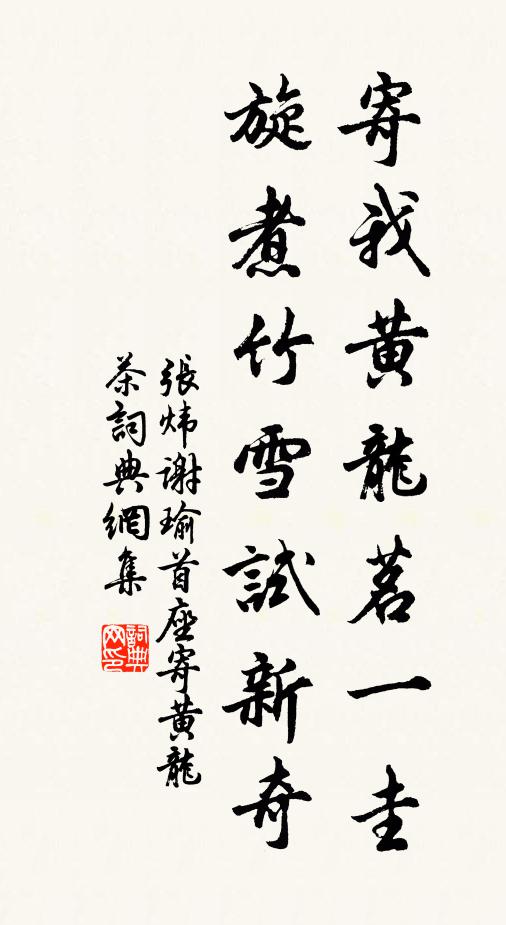 寄我黄龍茗一圭
旋煮竹雪試新奇
張煒謝瑜首座寄黄龍
茶詞典網集
詞典网印